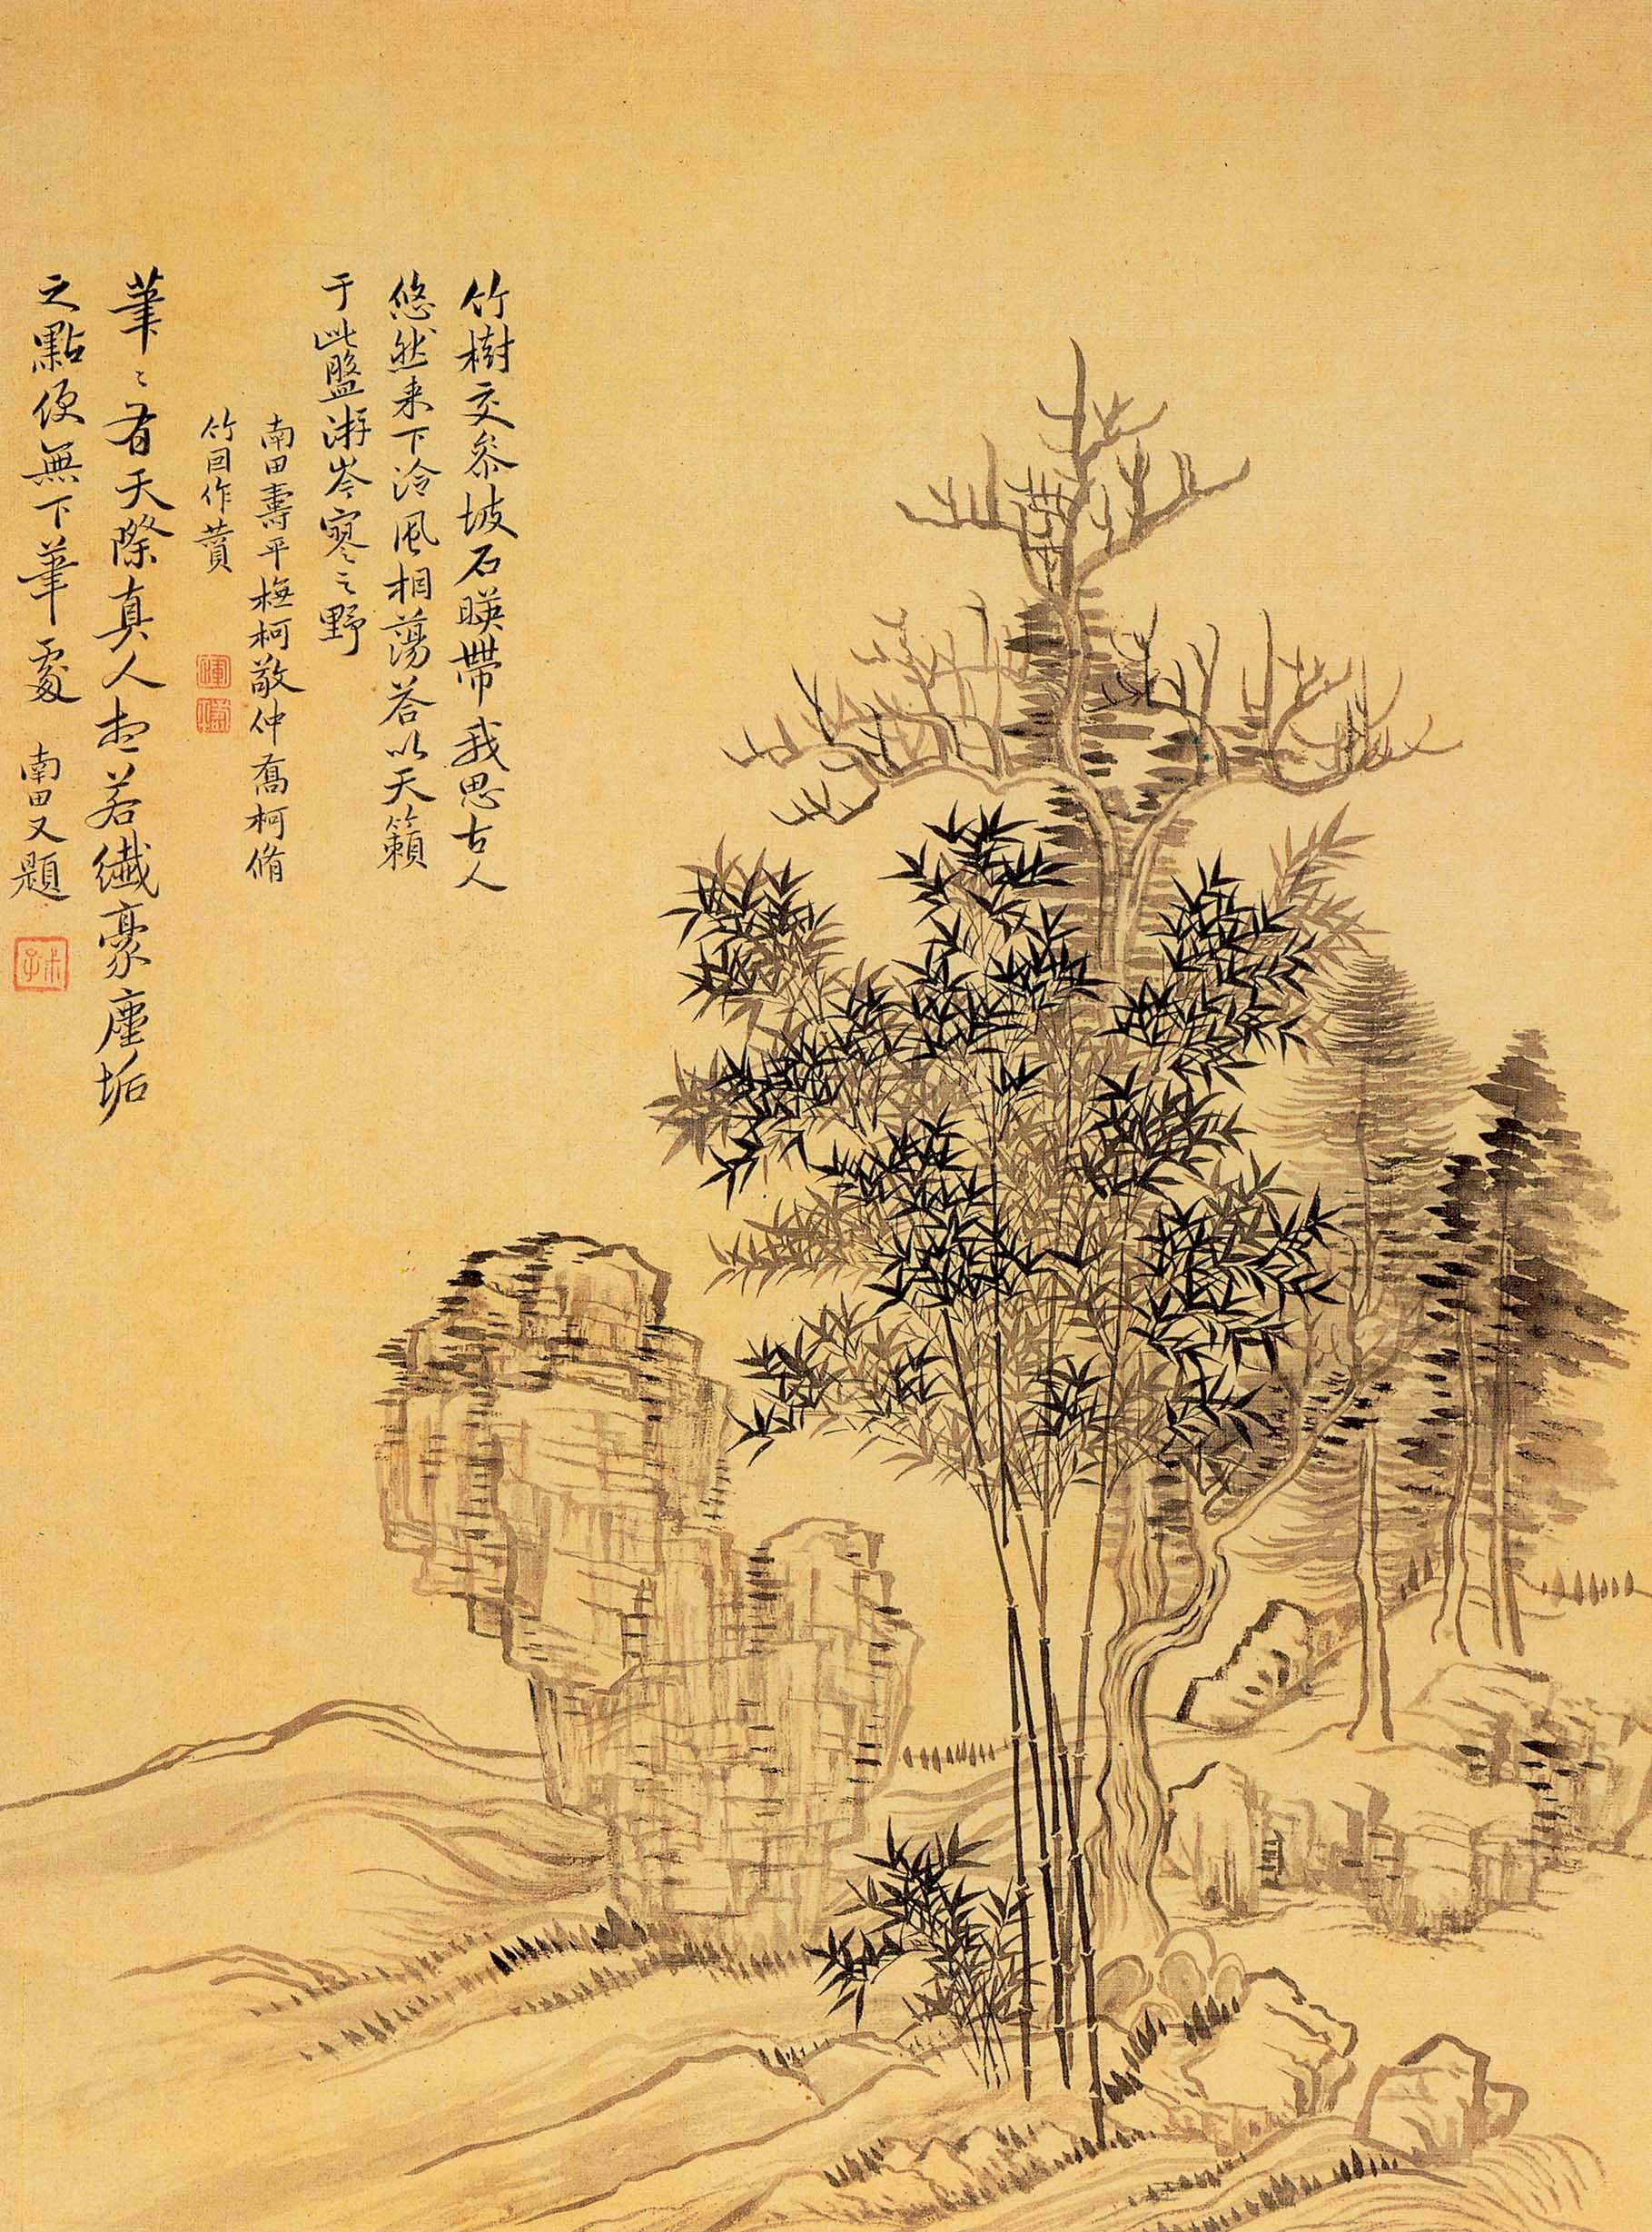 竹樹交參坡石暎帶我思古人
悠然来下泠風相蕩荅以天籟
于此盤游岑寥之野
南田壽平橅柯敬仲喬柯脩
竹囙作贊
筆〻有天際真人想若纖豪塵垢
之點便無下筆處 南田又題
叔子